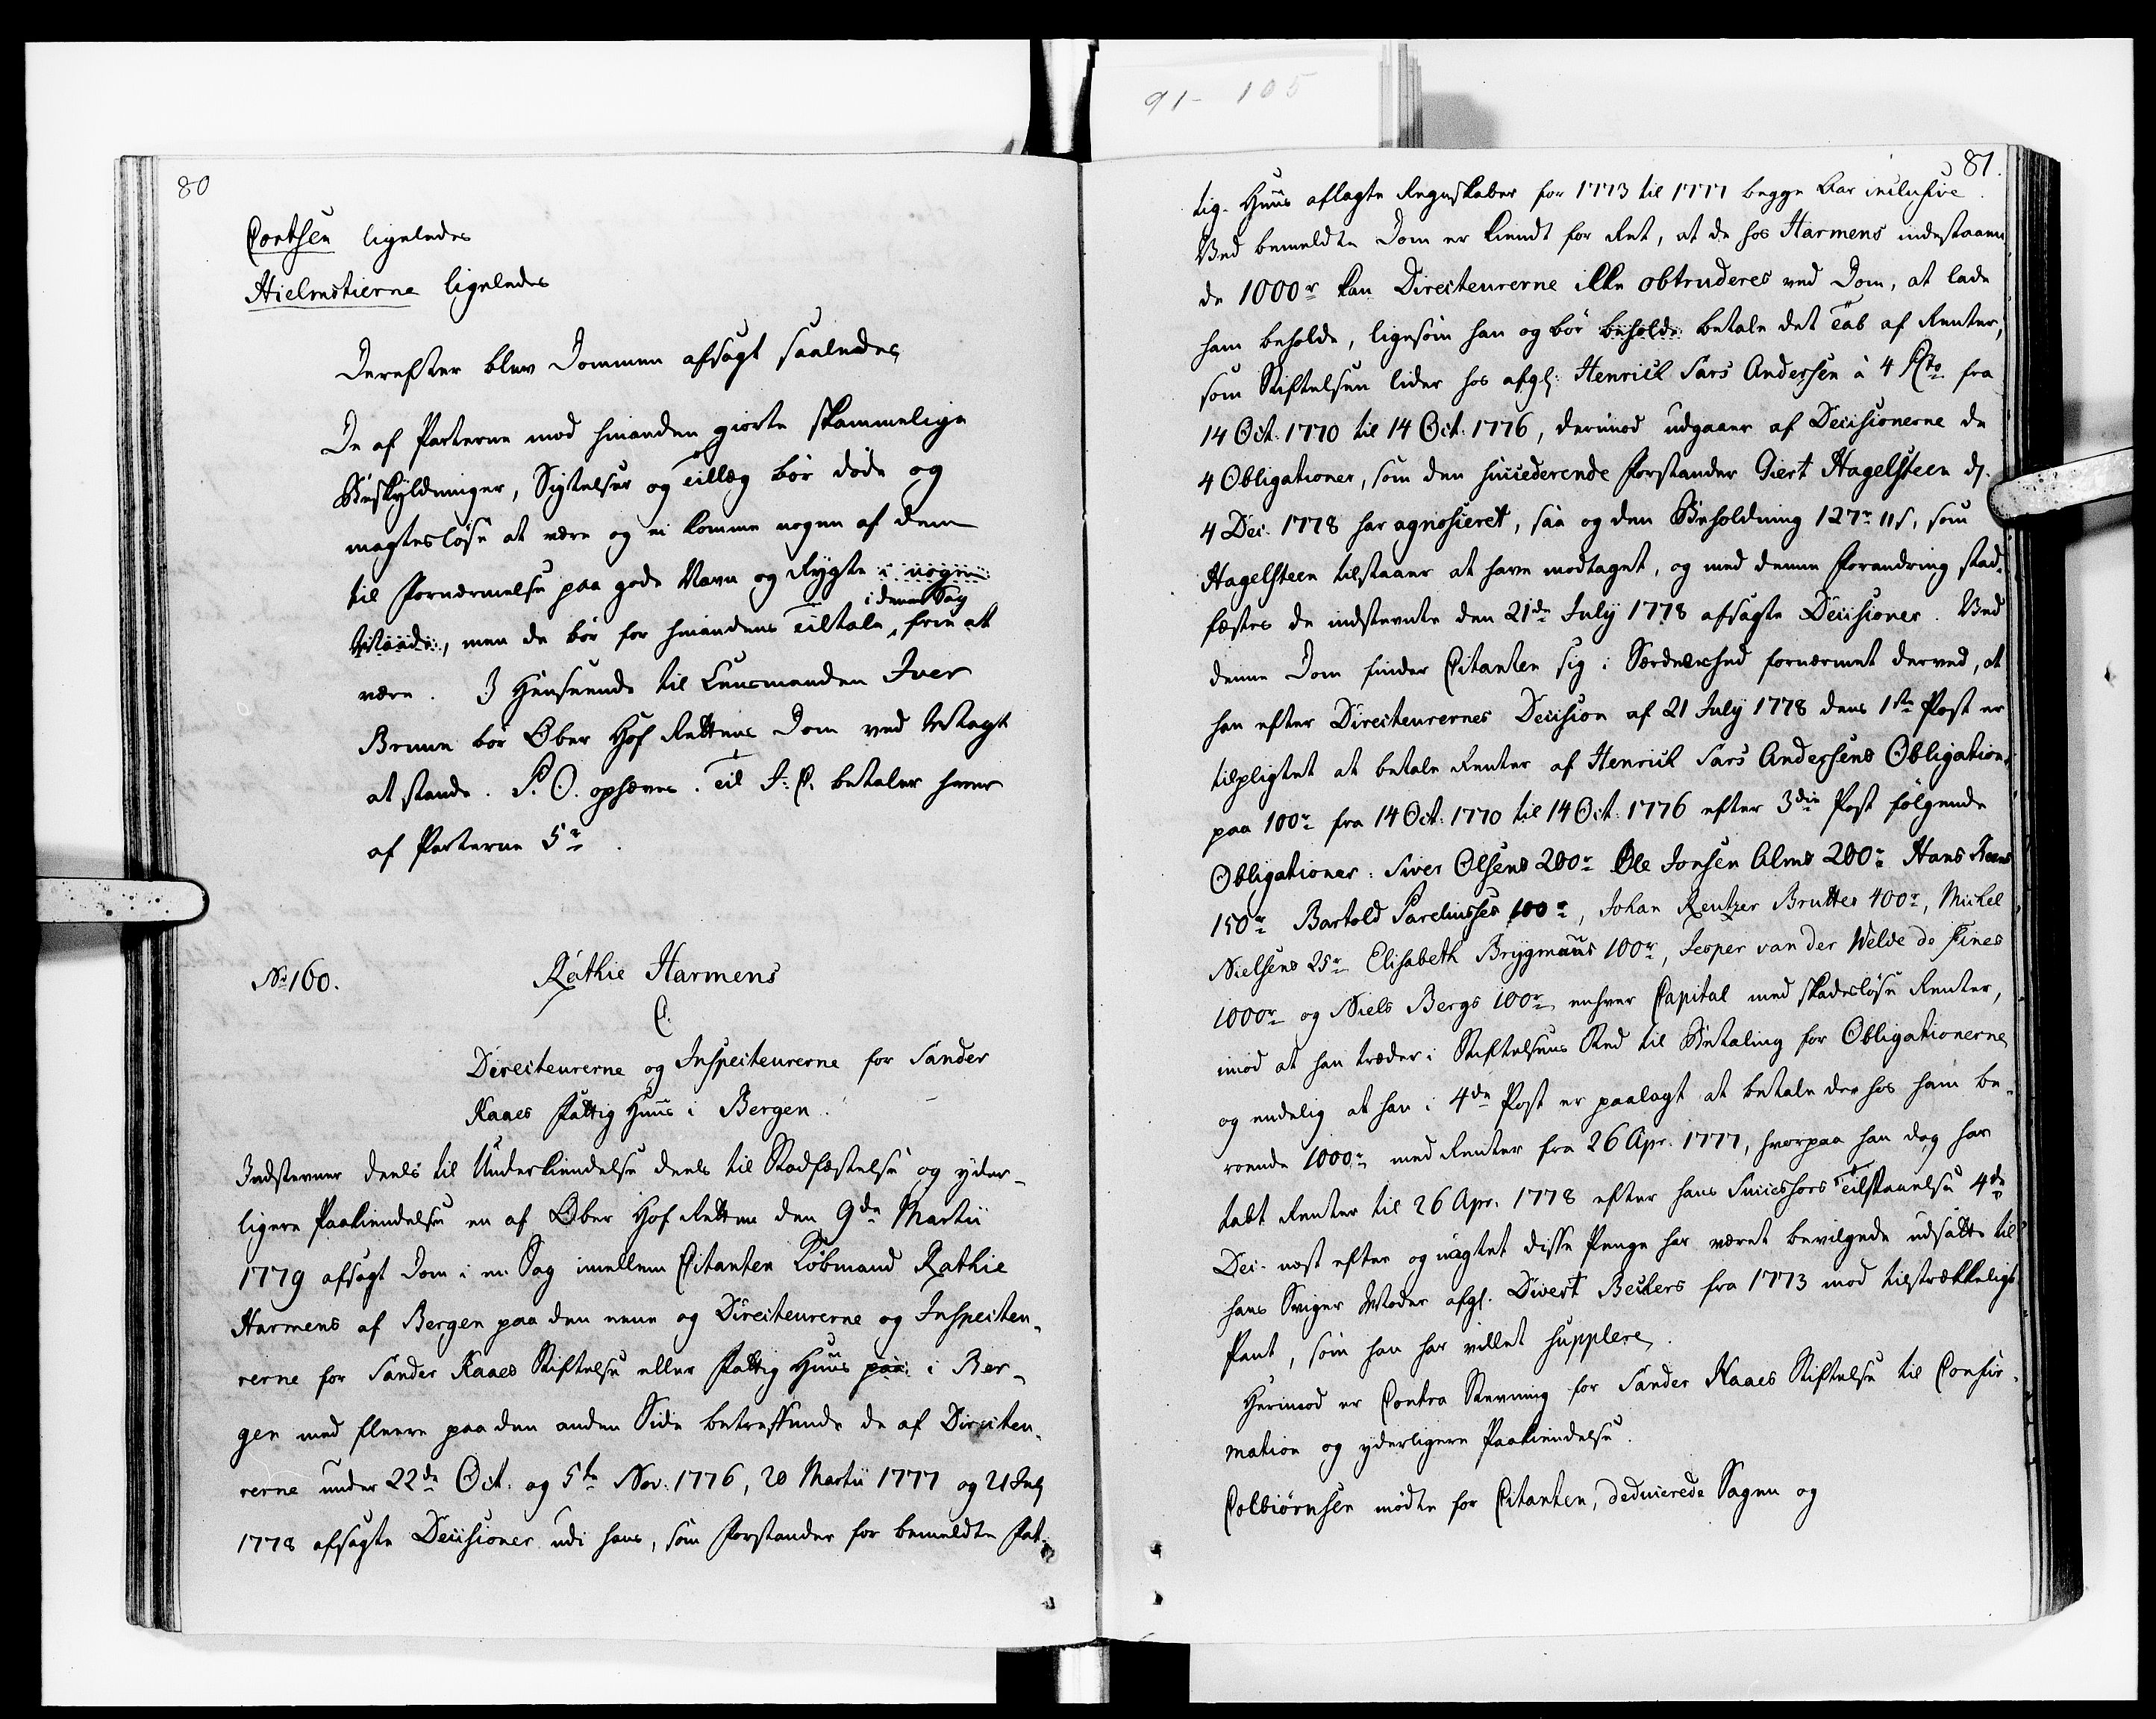 91-105
80
Cortsen ligeledes
Hielmstierne ligeledes
Derefter blev Dommen afsagt saaledes
De af Parterne mod hinanden giorte skammelige
Beskyldninger, Sigtelser og Tillæg bør døde og
magtesløse at være og ei komme nogen af dem
til Fornærmelse paa gode Navn og Rygte i nogen
i denne Sag
Maade, men de bør for hinandens Tiltale frie at
være. I Henseende til Lensmanden Iver
Brune bør Ober Hof Rettens Dom ved Magt
at stande. P. O. ophæves. Til J: C. betaler hver
af Parterne 5r
No 160.
Rathie Harmens
C.
Directeurerne og Inspecteurerne for Sander
Kaaes Fattig Huus i Bergen.
Indstevner deels til Underkiendelse deels til Stadfæstelse og yder-
ligere Paakiendelse en af Ober Hof Retten den 9de Martii
1779 afsagt Dom i en Sag imellem Citanten Kiøbmand Rathie
Harmens af Bergen paa den eene og Directeurerne og Inspecteu-
rerne for Sander Kaaes Stiftelse eller Fattig Huus paa i Ber-
gen med fleere paa den anden Side betreffende de af Directeu-
rerne under 22de Oct. og 5te Nov. 1776, 20 Martii 1777 og 21 July
1778 afsagte Decisioner udi hans, som Forstander for bemeldte Fat-
81.
tig-Huus aflagte Regnskaber for 1773 til 1777 begge Aar inclusive.
Ved bemeldte Dom er kiendt for Ret, at de hos Harmens indestaaen
de 1000r kan Directeurerne ikke obtruderes ved Dom, at lade
ham beholde, ligesom han og bør beholde betale det Tab af Renter,
som Stiftelsen lider hos afgl: Henrich Lars Andersen à 4 PCto fra
14 Oct: 1770 til 14 Oct: 1776, derimod udgaaer af Decisionerne de
4 Obligationer, som den succederende Forstander Giert Hagelsteen d.
4 Dec. 1778 har agnosieret, saa og den Beholdning 127r 11s, som
Hagelsteen tilstaaer at have modtaget, og med denne Forandring stad-
fæstes de indstevnte den 21de July 1778 afsagte Decisioner. Ved
denne Dom finder Citanten sig i Særdeleshed fornærmet derved, at
han efter Directeurernes Decision af 21 July 1778 dens 1ste Post er
tilpligtet at betale Renter af Henrich Lars Andersens Obligation
paa 100r fra 14 Oct: 1770 til 14 Oct: 1776 efter 3die Post følgende
Obligationer: Siver Olsens 200r Ole Jonsen Alms 200r Hans
150r Bartold 100r, Johan Rentzer Bruttes 400r, Michel
Nielsens 25r Elisabeth Brygmans 100r, Jesper van der Welde de Fines
1000r og Niels Bergs 100r enhver Capital med skadesløse Renter,
imod at han træder i Stiftelsens Sted til Betaling for Obligationerne,
og endelig at han i 4de Post er paalagt at betale der hos ham be-
roende 1000r med Renter fra 26 Apr. 1777, hvorpaa han dog har
tabt Renter til 26 Apr. 1778 efter hans Successors Tilstaaelse 4de
Dec. næst efter og uagtet disse Penge har været bevilgede udsatte til
hans Sviger Moder afgl. Divert Beckers fra 1773 mod tilstrækkeligt
Pant, som han har villet supplere.
Herimod er Contra Stevning for Sander Kaaes Stiftelse til Confir-
mation og yderligere Paakiendelse.
Colbiørnsen mødte for Citanten, deducerede Sagen og